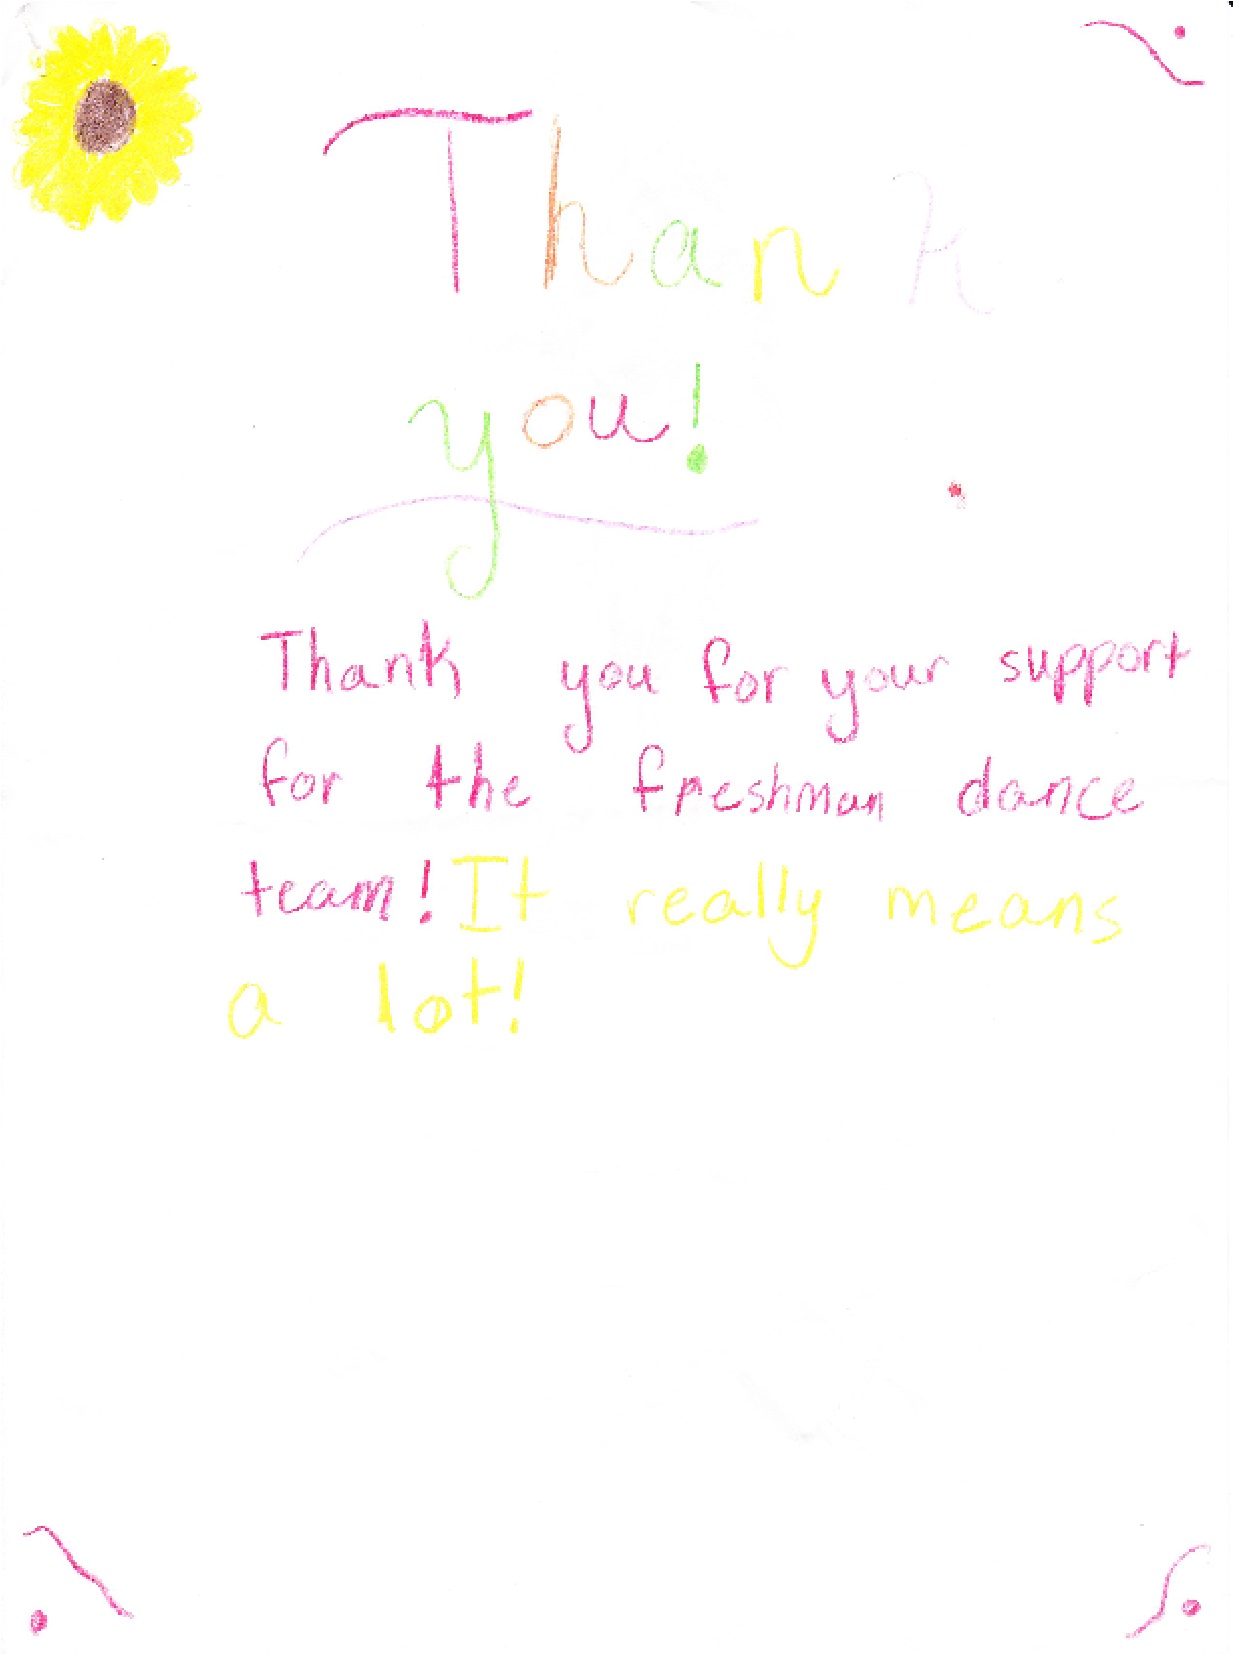 Thank
you!
Thank you for your support
for the freshman dance
team! It really means
a lot!